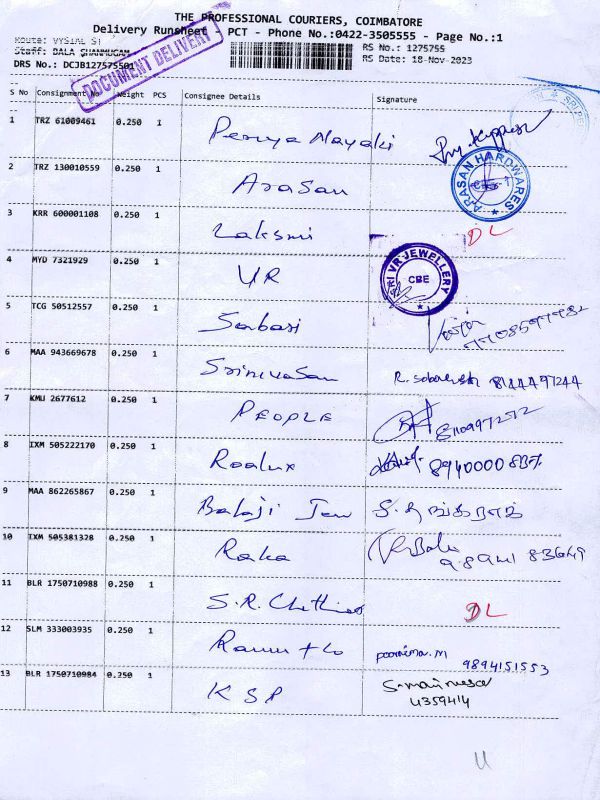 THE PROFESSIONAL COURIERS, COIMBATORE
Delivery Runsheet - PCT - Phone No.:0422-3505555 - Page No.:1
Route: VYSIAL ST
RS No.: 1275755
Staff: BALA SHANMUGAM
RS Date: 18-Nov-2023
DRS No.: DCJB127575501
DOCUMENT DELIVERY
S No Consignment No Weight PCS Consignee Details Signature
1 TRZ 61009461 0.250 1 Periya Nayaki
2 TRZ 130010559 0.250 1 Arasan ARASAN HARDWARES
3 KRR 600001108 0.250 1 Laksmi DL
4 MYD 7321929 0.250 1 VR SRI VR JEWELLERY CBE
5 TCG 50512557 0.250 1 Sabari
6 MAA 943669678 0.250 1 Srinivasan 8144497244
7 KMU 2677612 0.250 1 PEOPLE 8110997272
8 IXM 505222170 0.250 1 Roalux
9 MAA 862265867 0.250 1 Balaji Jew S. தங்கராஜ்
10 IXM 505381328 0.250 1 Raka
11 BLR 1750710988 0.250 1 S.R. Chettiar DL
12 SLM 333003935 0.250 1 poornima.M 9894151553
13 BLR 1750710984 0.250 1 KSP 4359414